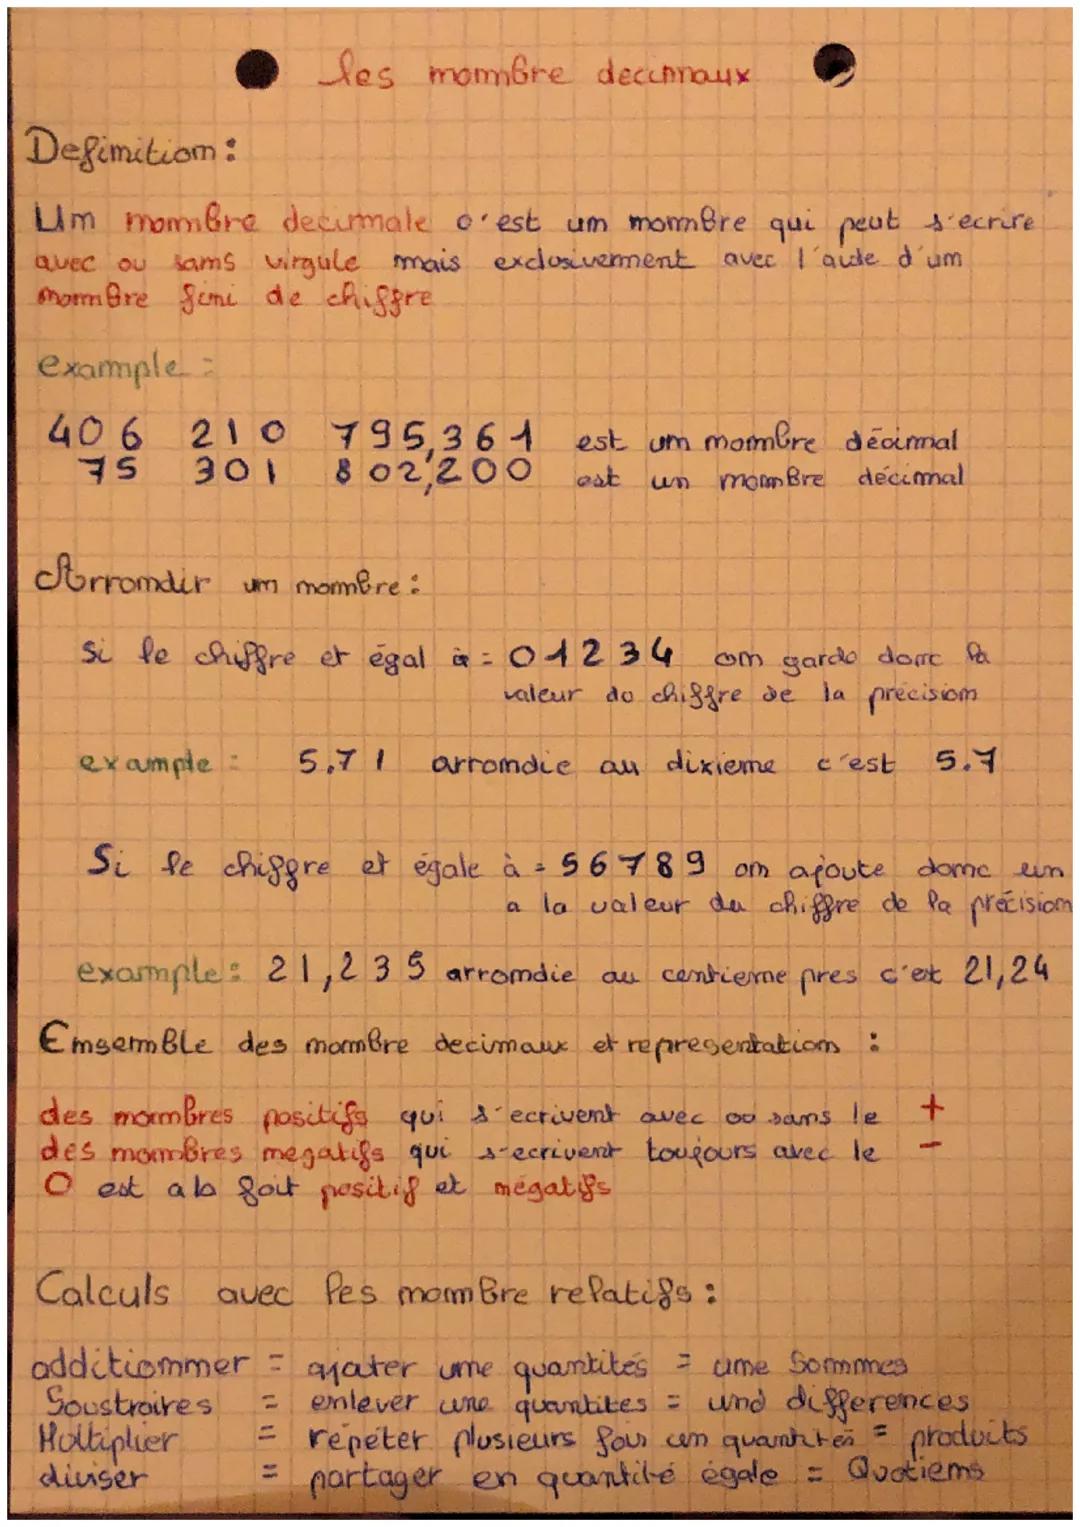 les nombre decimaux
Definition :
Un nombre decimale c'est un nombre qui peut s'ecrire
avec ou sans virgule mais exclusivement avec l'aide d'un
nombre fini de chiffre
example :
406 210 795,361 est un nombre décimal
75 301 802,200 est un nombre décimal
Arrondir un nombre :
Si le chiffre et égal à = 0 1 2 3 4 on garde donc la
valeur du chiffre de la précision
example : 5.71 arrondie au dixieme c'est 5.7
Si le chiffre et égale à = 5 6 7 8 9 on ajoute donc un
a la valeur du chiffre de la précision
example : 21,235 arrondie au centieme pres c'et 21,24
Ensemble des nombre decimaux et representation :
des nombres positifs qui s'ecrivent avec ou sans le +
des nombres negatifs qui s'ecrivent toujours avec le -
0 est a la foit positif et négatifs
Calculs avec les nombre relatifs :
additionner = ajater une quantités = une Sommes
Soustraires = enlever une quantites = und differences
Multiplier = répéter plusieurs fois un quantités = produits
diviser = partager en quantité égale = Quotiens